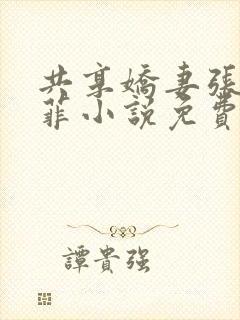 共享嬌妻張
菲小説免費
譚貴強